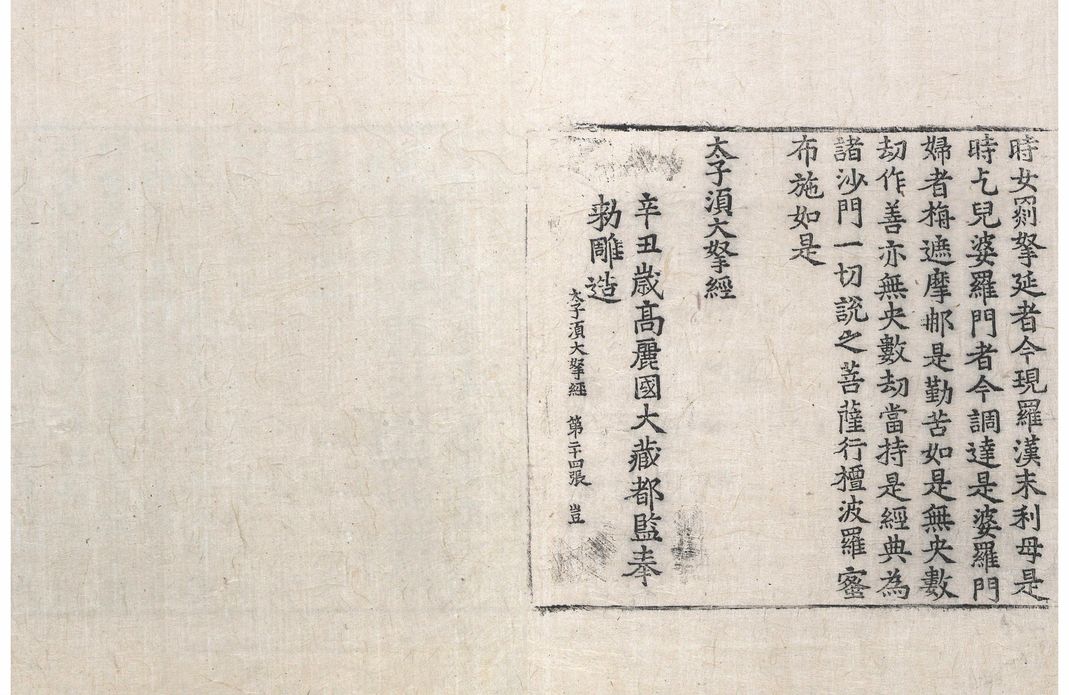 時女罽拏延者今現羅漢末利母是
時乞兒婆羅門者今調達是婆羅門
婦者栴遮摩那是勤苦如是無央數
劫作善亦無央數劫當持是經典為
諸沙門一切說之菩薩行檀波羅蜜
布施如是
太子湏大拏經
辛丑歲高麗國大藏都監奉
勑雕造
太子湏大拏經 第二十四張 豈